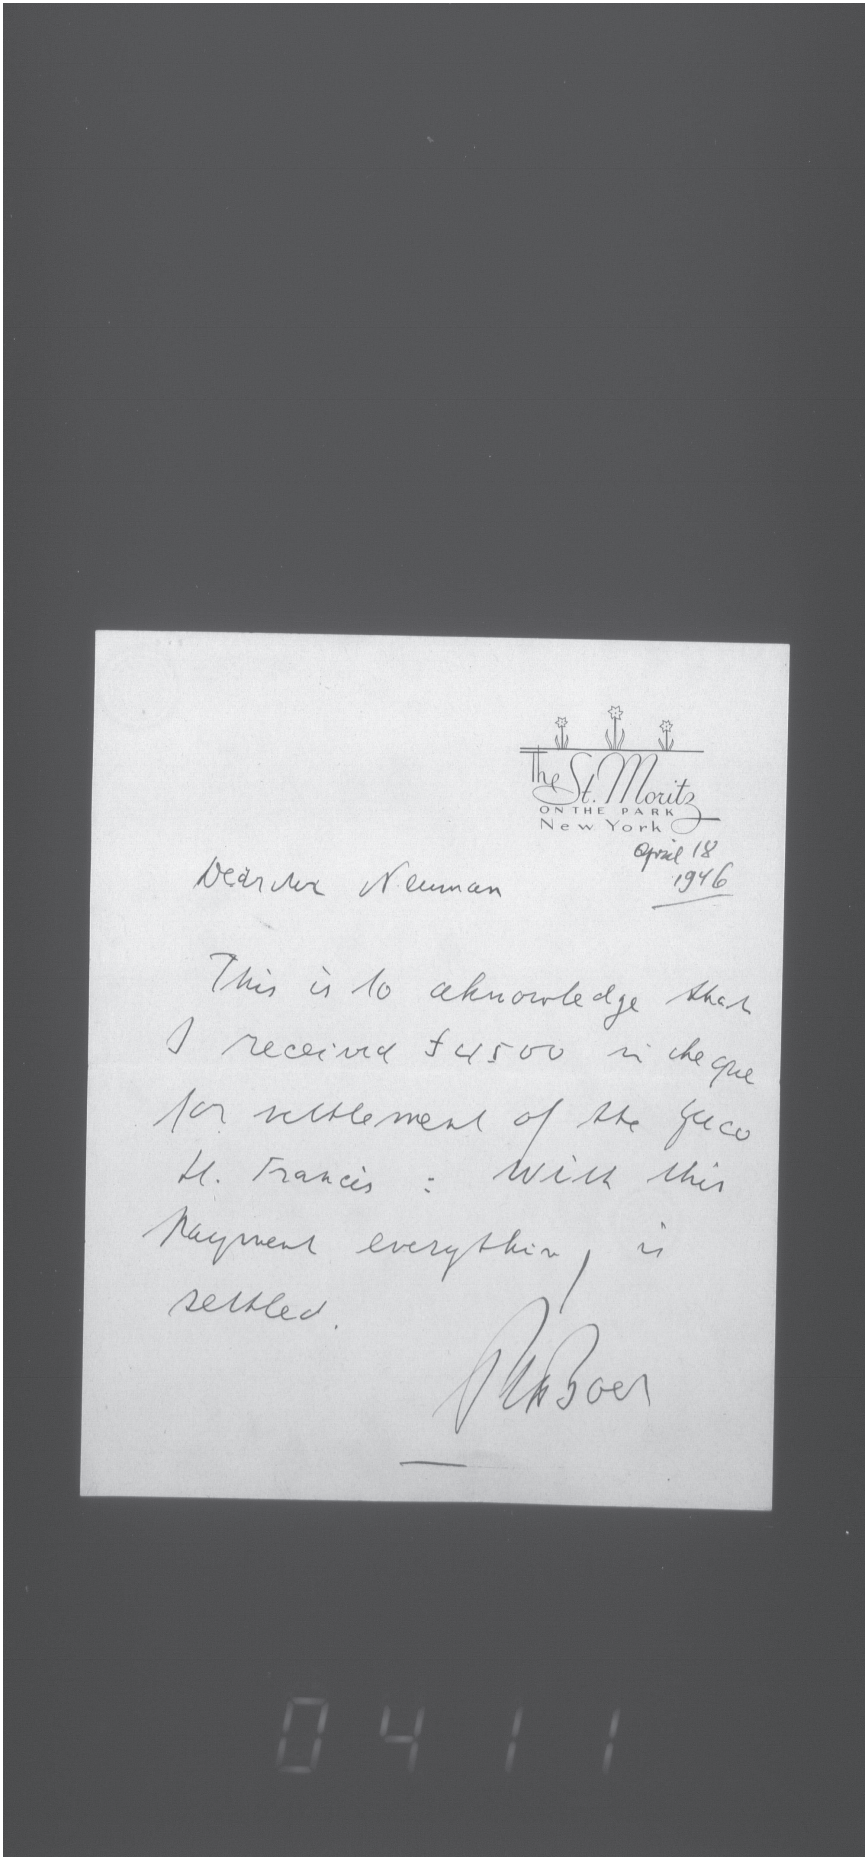 The St. Moritz
ON THE PARK
New York
April 18
1946
Dear Mr Neuman
This is to aknowledge that
I received $ 4500 in cheque
for settlement of the Greco
St. Francis : With this
payment everything is
settled.
de Boer
0411